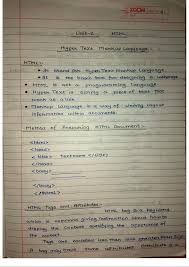 Unit-2 HTML
Hyper Text Markup Language :-
HTML:-
• It stand for Hyper Text Markup Language
• It is the basic tool for designing a webpage
• HTML is not a programming language
• Hyper Text is simply a piece of text that
work as a link
• Markup Language is a way of writing layout
information within documents.
Method of Running HTML Document :-
<html>
<head>
<title> Technoon </title>
</head>
<body>
</body>
</html>
HTML Tags and Attributes :-
HTML tag is a keyword
which is someone giving instruction about how to
display the content specifying the appearance of
the content.
Tags are enclosed less than and greater than sign
A tag may have some attributes. Attribute is a